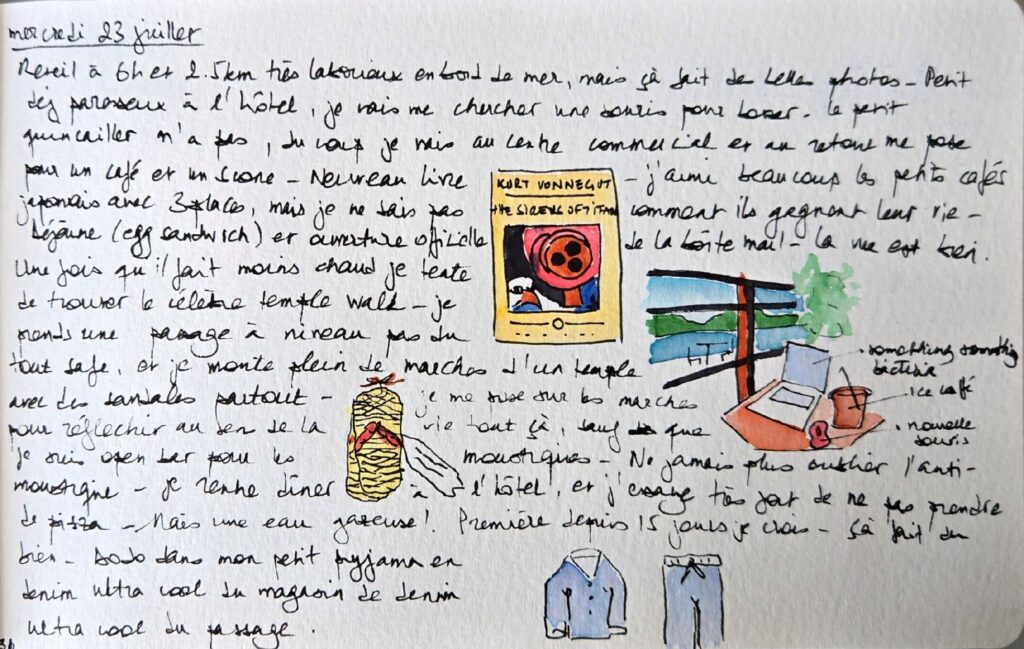 mercredi 23 juillet
Réveil à 6h et 2.5km très laborieux en bord de mer, mais çà fait de belles photos - Petit
déj paresseux à l'hôtel, je vais me chercher une souris pour bosser. Le petit
quincailler n'a pas, du coup je vais au centre commercial et au retour me pose
pour un café et un scone - Nouveau livre
KURT VONNEGUT
THE SIRENS OF TITAN
- j'aime beaucoup les petits cafés
japonais avec 3 places, mais je ne sais pas comment ils gagnent leur vie -
Déjeune (egg sandwich) et ouverture officielle de la boîte mail - La vue est bien.
Une fois qu'il fait moins chaud je tente
de trouver le célèbre temple walk - je
prends une passage à niveau pas du
tout safe, et je monte plein de marches d'un temple
avec des sandales partout - je me pose sur les marches
pour réfléchir au sens de la vie tout çà, sauf que
je suis open bar pour les moustiques - Ne jamais plus oublier l'anti-
moustique - je rentre dîner à l'hôtel, et j'essaye très fort de ne pas prendre
de pizza - Mais une eau gazeuse! Première depuis 15 jours je crois - çà fait du
bien - Dodo dans mon petit pyjama en
denim ultra cool du magasin de denim
ultra cool du passage.
something something
ice café
nouvelle
souris